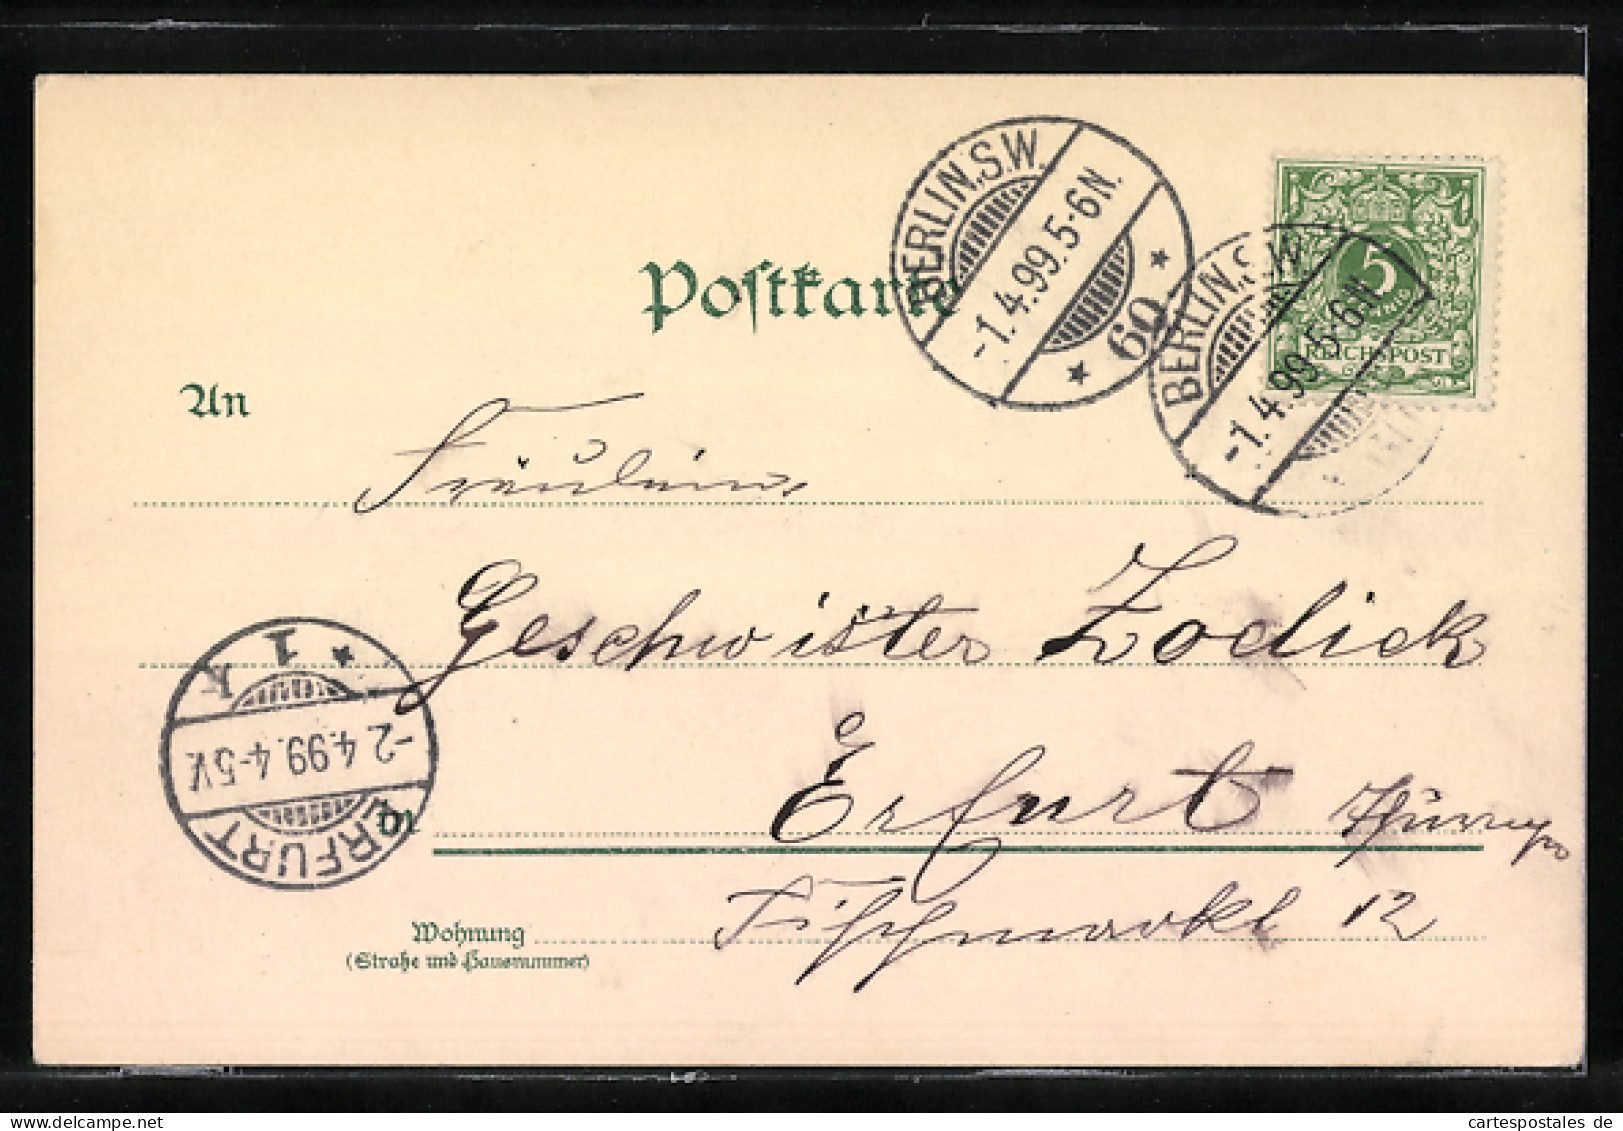 Postkarte
BERLIN.S.W.
-1.4.99.5-6N.
* 60 *
BERLIN.S.W.
-1.4.99.5-6N.
5
REICHSPOST
An
Fräuleins
Geschwister Zodick
1 k
-2.4.99.4-5V.
ERFURT
in
Erfurt
Fischmarkt 12
Wohnung
(Straße und Hausnummer)
cartespostales de